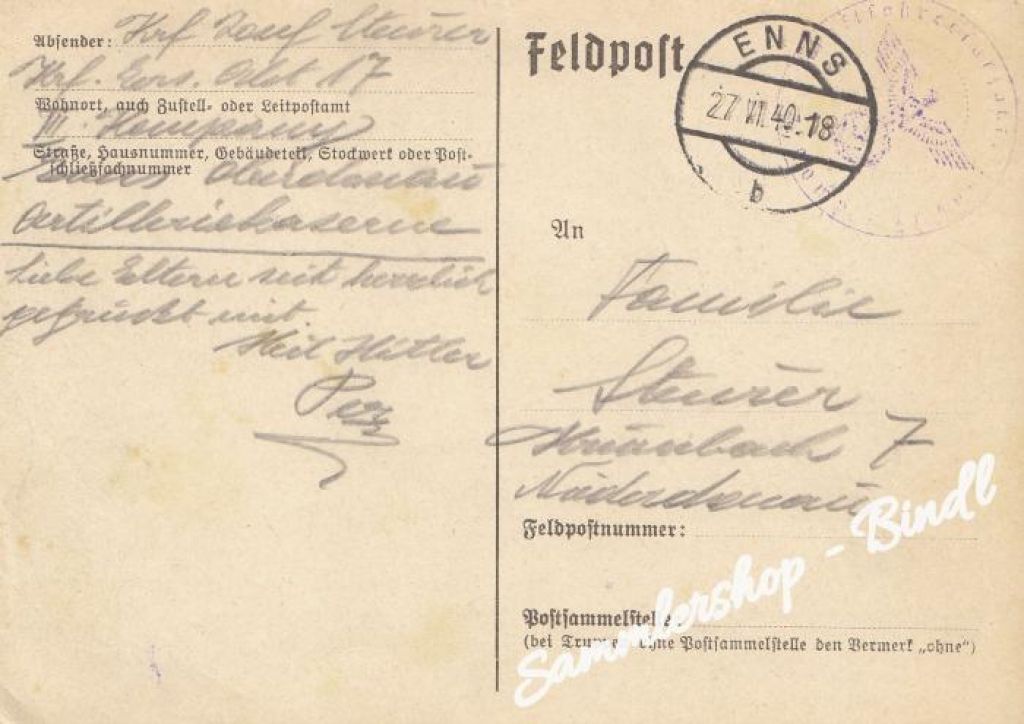 Absender: Krf Josef Steurer
Krf. Ers. Abt. 17
Wohnort, auch Zustell- oder Leitpostamt
III. Kompany
Straße, Hausnummer, Gebäudeteil, Stockwerk oder Post-
schließfachnummer
Enns Oberdonau
Artilleriekaserne
Liebe Eltern seit herzlich
gegrückt mit
Heil Hitler
Feldpost
ENNS
27.VI.40.18
b
An
Familie
Steurer
7
Niederdonau
Feldpostnummer:
Postsammelstelle:
(bei ohne Postsammelstelle den Vermerk „ohne“)
Sammlershop - Bindl